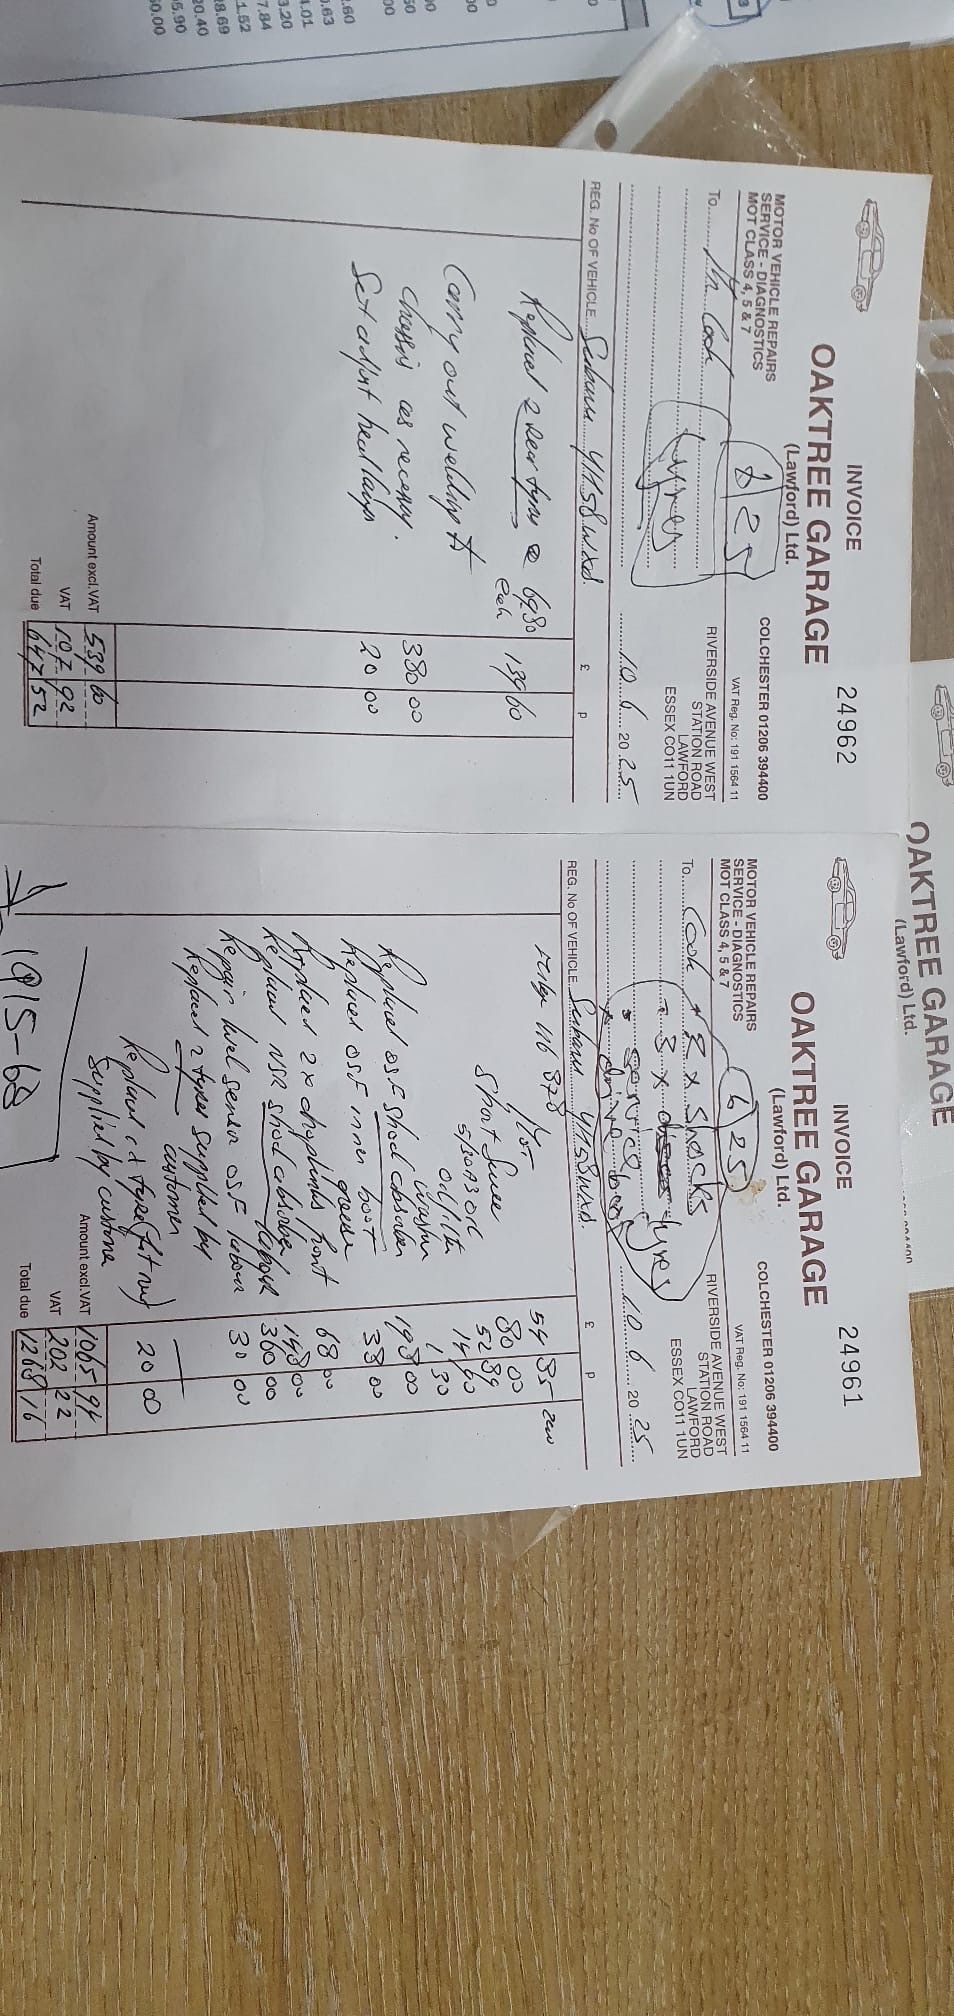 .60
0.63
4.01
3.20
7.84
1.52
8.69
20.40
5.90
00.00
INVOICE
24962
OAKTREE GARAGE
(Lawford) Ltd.
MOTOR VEHICLE REPAIRS
SERVICE - DIAGNOSTICS
MOT CLASS 4, 5 & 7
COLCHESTER 01206 394400
VAT Reg. No: 191 1564 11
RIVERSIDE AVENUE WEST
STATION ROAD
LAWFORD
ESSEX CO11 1UN
To Mr Cook
25
10 6 20 25
REG. No OF VEHICLE Subaru
£ p
Replaced 2 rear tyres @ 69.80 each 139 60
Carry out welding to
chassis as necessary. 380 00
Set adjust headlamps 20 00
Amount excl.VAT 539 60
VAT 107 92
Total due 647 52
OAKTREE GARAGE
(Lawford) Ltd.
INVOICE
24961
OAKTREE GARAGE
(Lawford) Ltd.
MOTOR VEHICLE REPAIRS
SERVICE - DIAGNOSTICS
MOT CLASS 4, 5 & 7
COLCHESTER 01206 394400
VAT Reg. No: 191 1564 11
RIVERSIDE AVENUE WEST
STATION ROAD
LAWFORD
ESSEX CO11 1UN
6 25
To Cook
2 x shocks
3 x tyres
service
drive boot
10 6 20 25
REG. No OF VEHICLE Subaru
£ p
116 878
MOT 54 85
80 00
52 89
oil filter 14 60
washer 1 30
Replaced osf shock absorber 198 00
Replaced osf inner boot 38 00
grease
Replaced 2 x droplinks front 68 00
148 00
Replaced NSR shock absorber labour 360 00
Repair level sensor osf labour 30 00
Replaced 2 tyres supplied by
customer
Replaced 1 tyre
supplied by customer 20 00
Amount excl.VAT 1065 94
VAT 202 22
Total due 1268 16
1915-68